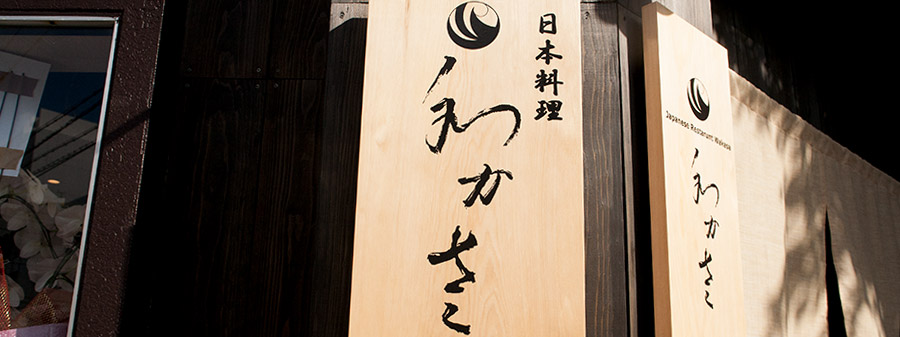 日本料理
和かさ
Japanese Restarunt Wakasa
和かさ